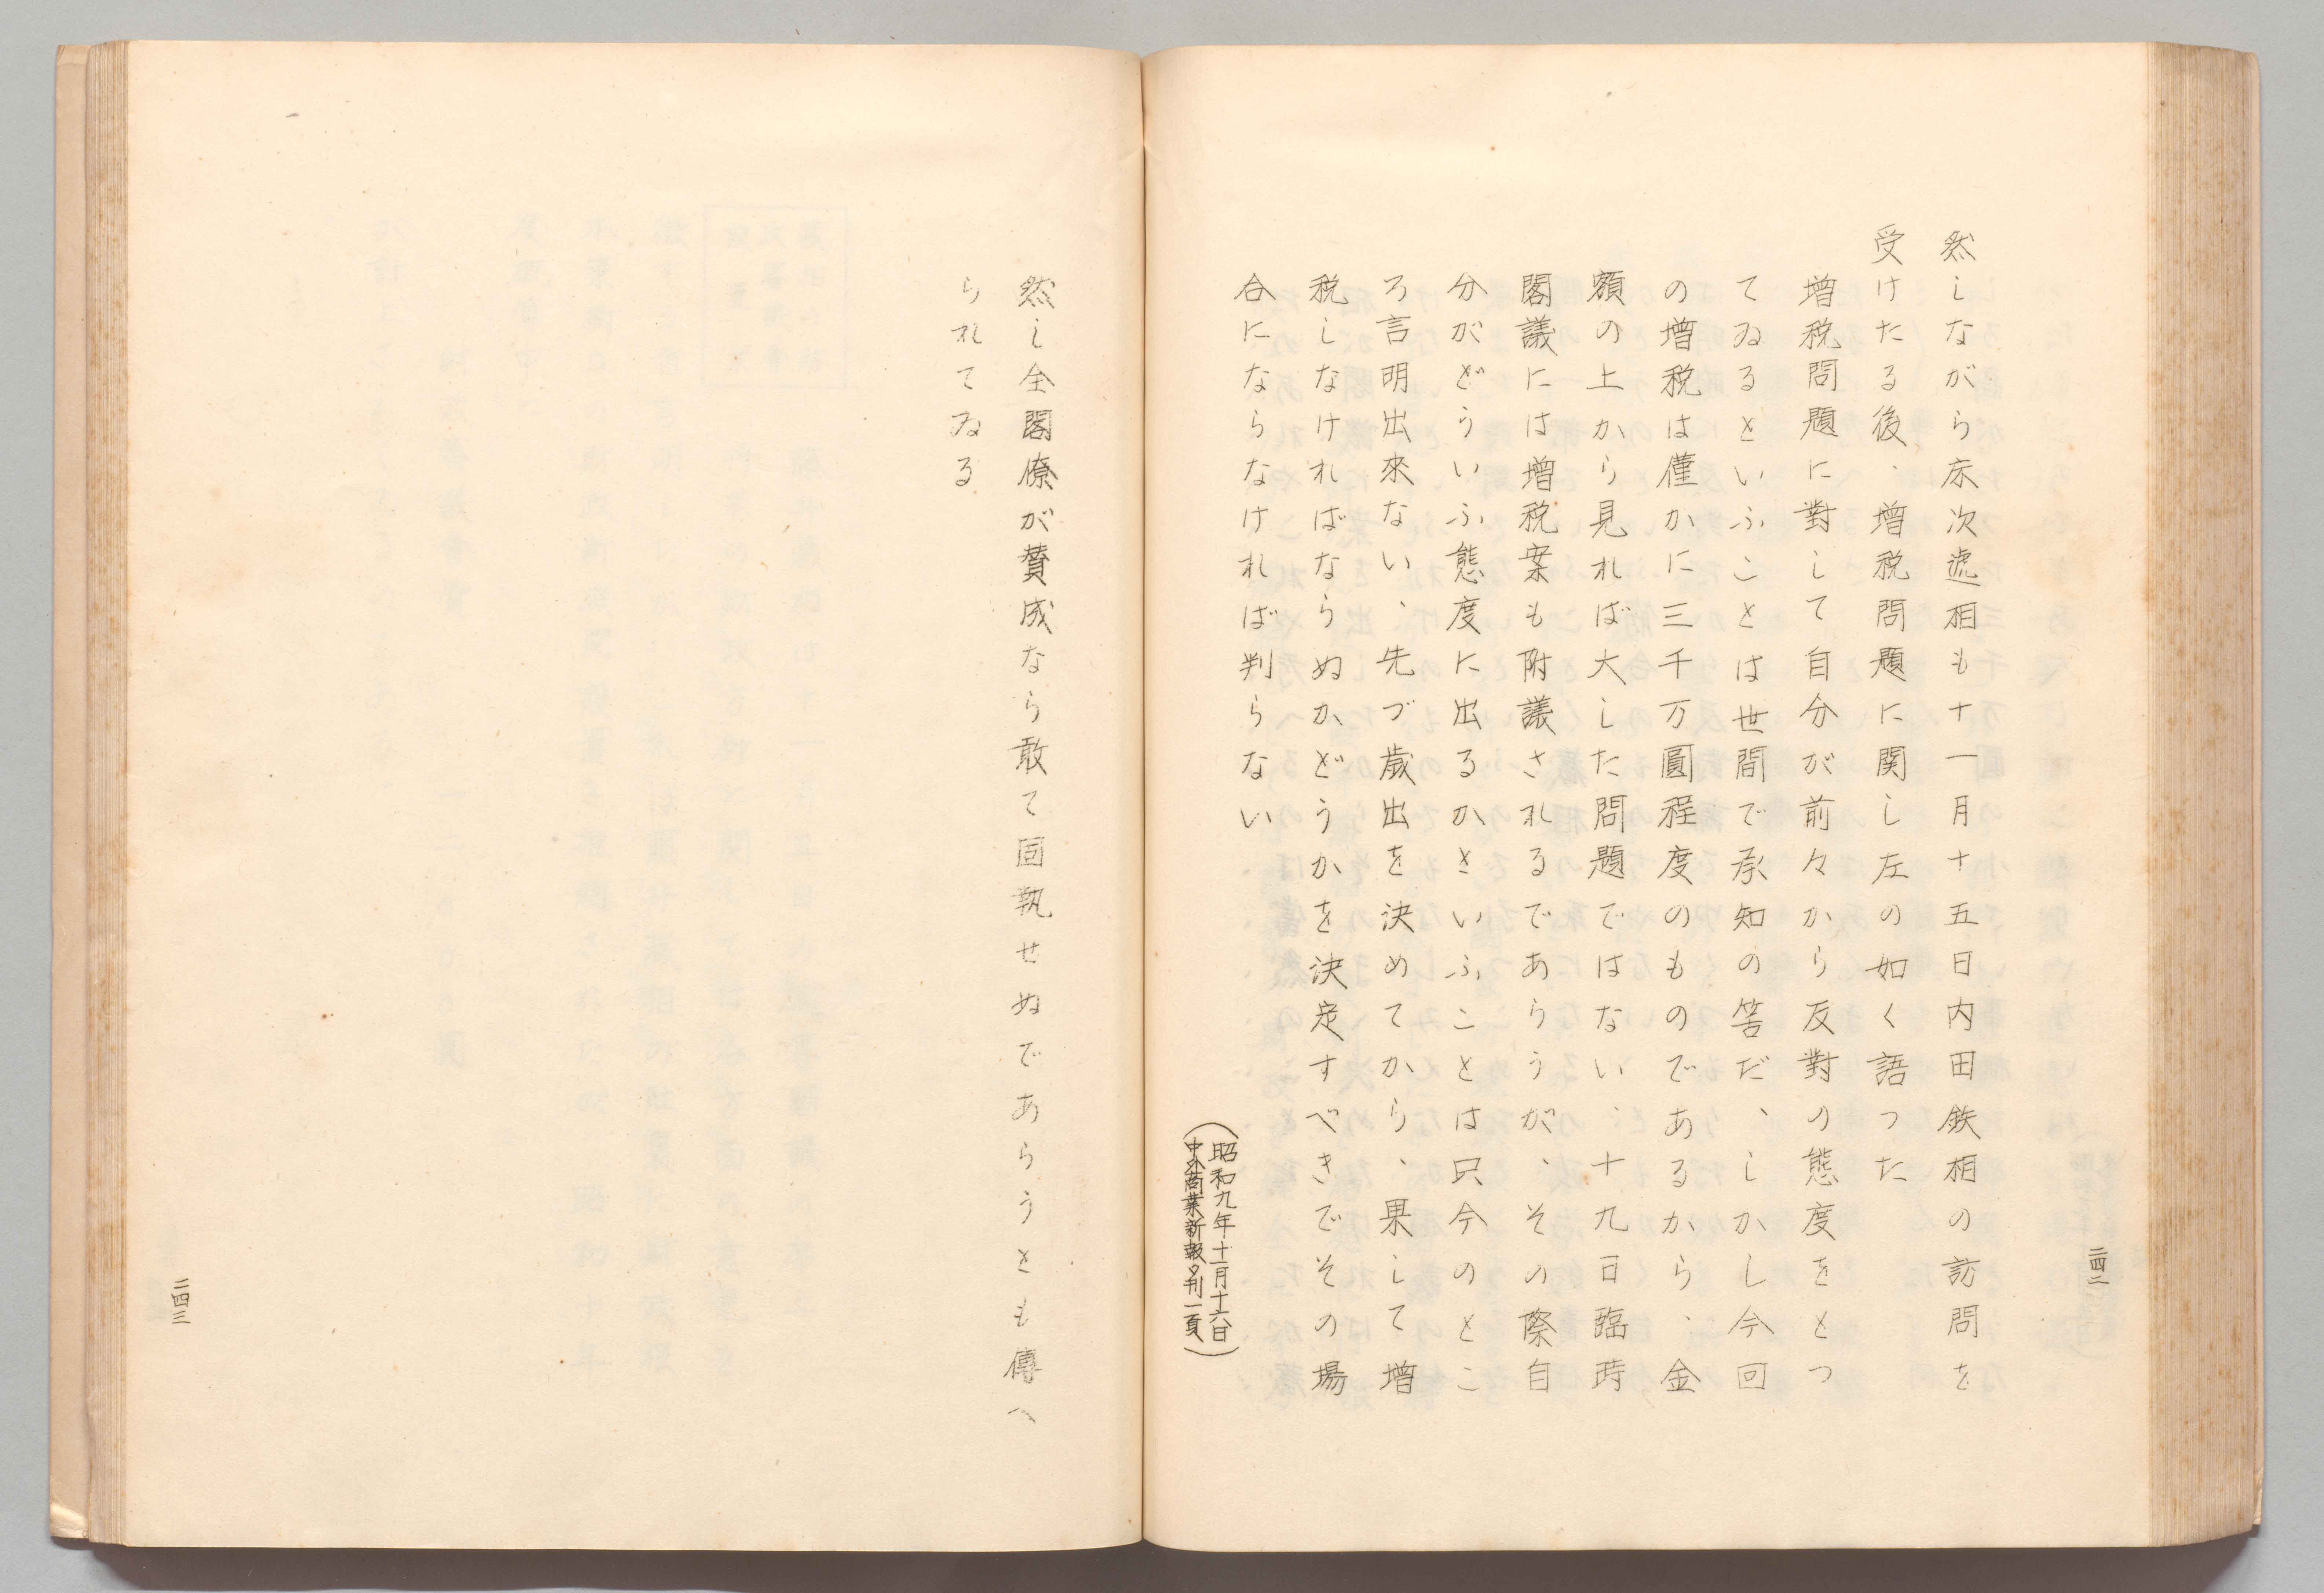 然しながら床次逓相も十一月十五日内田鉄相の訪問を
受けたる後、増税問題に関し左の如く語つた
増税問題に對して自分が前々から反對の態度をとつ
てゐるといふことは世間で承知の筈だ、しかし今回
の増税は僅かに三千万圓程度のものであるから、金
額の上から見れば大した問題ではない、十九日臨時
閣議には増税案も附議されるであらうが、その際自
分がどういふ態度に出るかといふことは只今のとこ
ろ言明出來ない、先づ歳出を決めてから、果して増
税しなければならぬかどうかを決定すべきでその場
合にならなければ判らない
（昭和九年十一月十六日
中外商業新報夕刊一頁）
二四二
然し全閣僚が賛成なら敢て固執せぬであらうとも傳へ
られてゐる
二四三